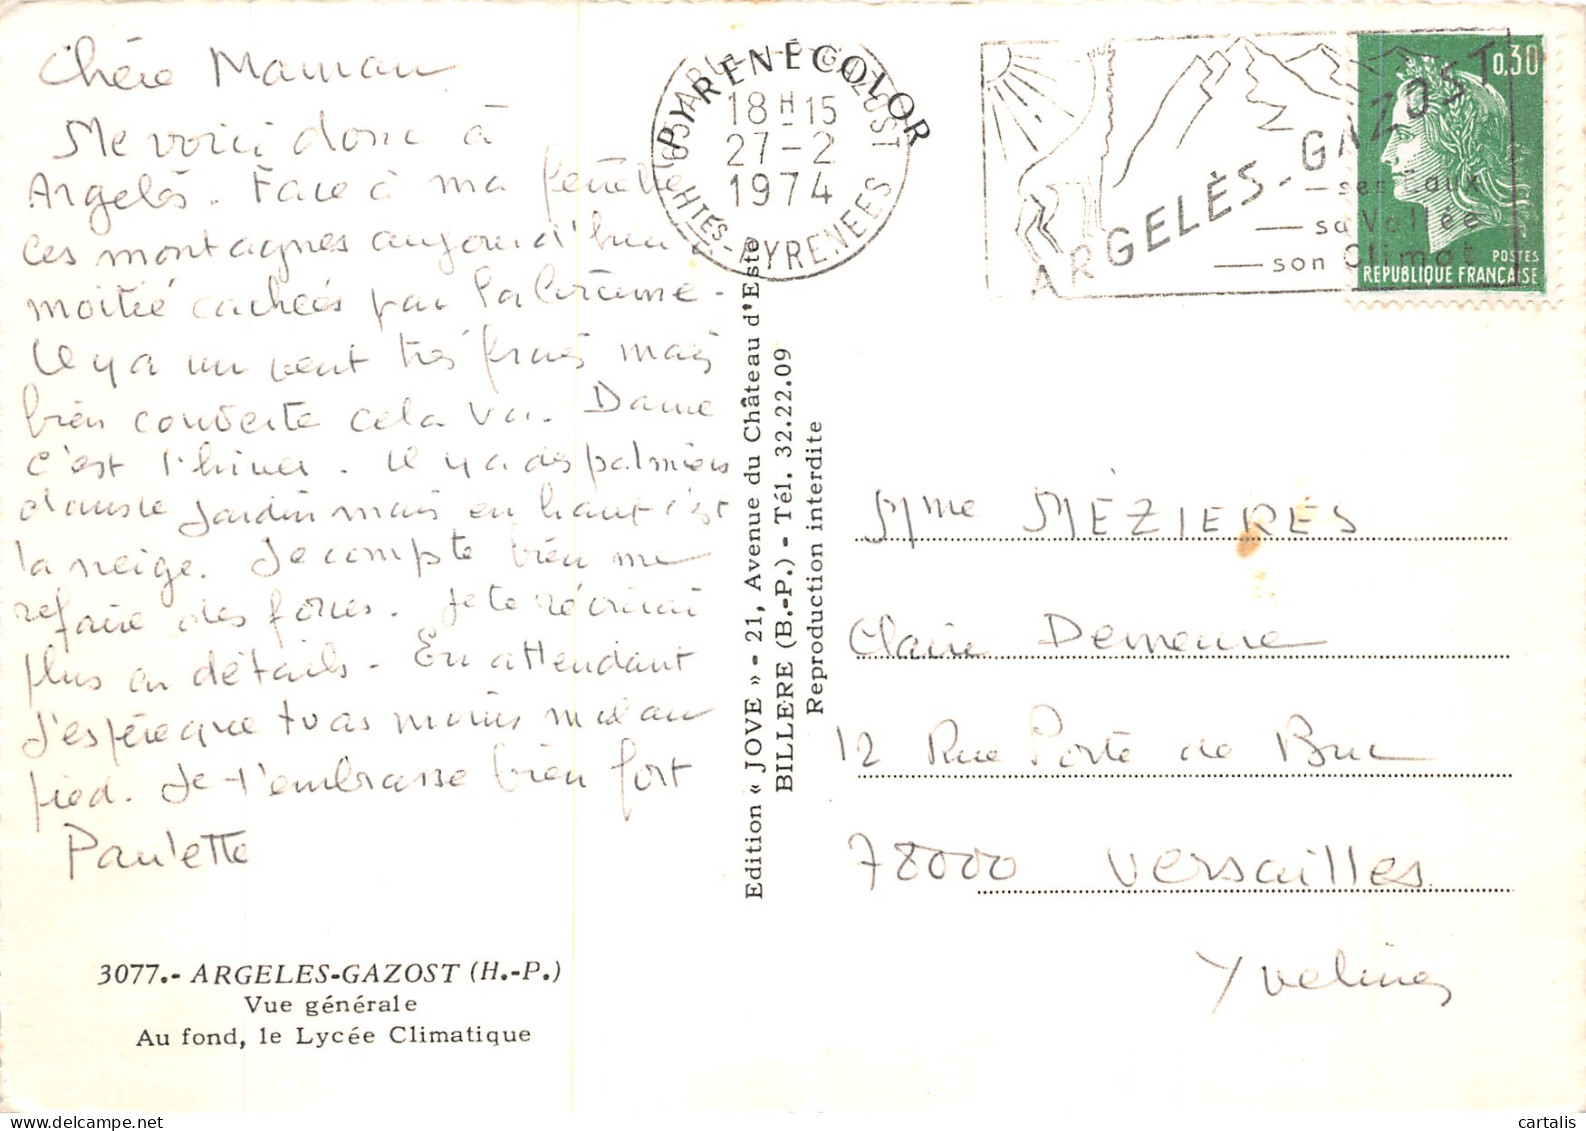 Chère Maman
Me voici donc à
Argelès. Face à ma fenêtre
ces montagnes aujourd'hui
moitié cachées par la brume.
Il y a un vent très frais mais
bien couverte cela va. Dame
c'est l'hiver. Il y a des palmiers
dans le jardin mais en haut c'est
la neige. Je compte bien me
refaire des forces. Je te récrirai
plus en détails. En attendant
J'espère que tu as moins mal au
pied. Je t'embrasse bien fort
Paulette
3077.- ARGELES-GAZOST (H.-P.)
Vue générale
Au fond, le Lycée Climatique
PYRÉNÉCOLOR
Edition « JOVE » - 21, Avenue du Château d'Este
BILLERE (B.-P.) - Tél. 32.22.09
Reproduction interdite
18 H 15
27-2
1974
HTES-PYRENEES
ARGELÈS-GAZOST
ses Eaux
sa Vallée
son Climat
0,30
POSTES
REPUBLIQUE FRANÇAISE
Mme MÉZIERES
Claire Demeure
12 Rue Porte de Buc
78000 Versailles
Yvelines
cartalis